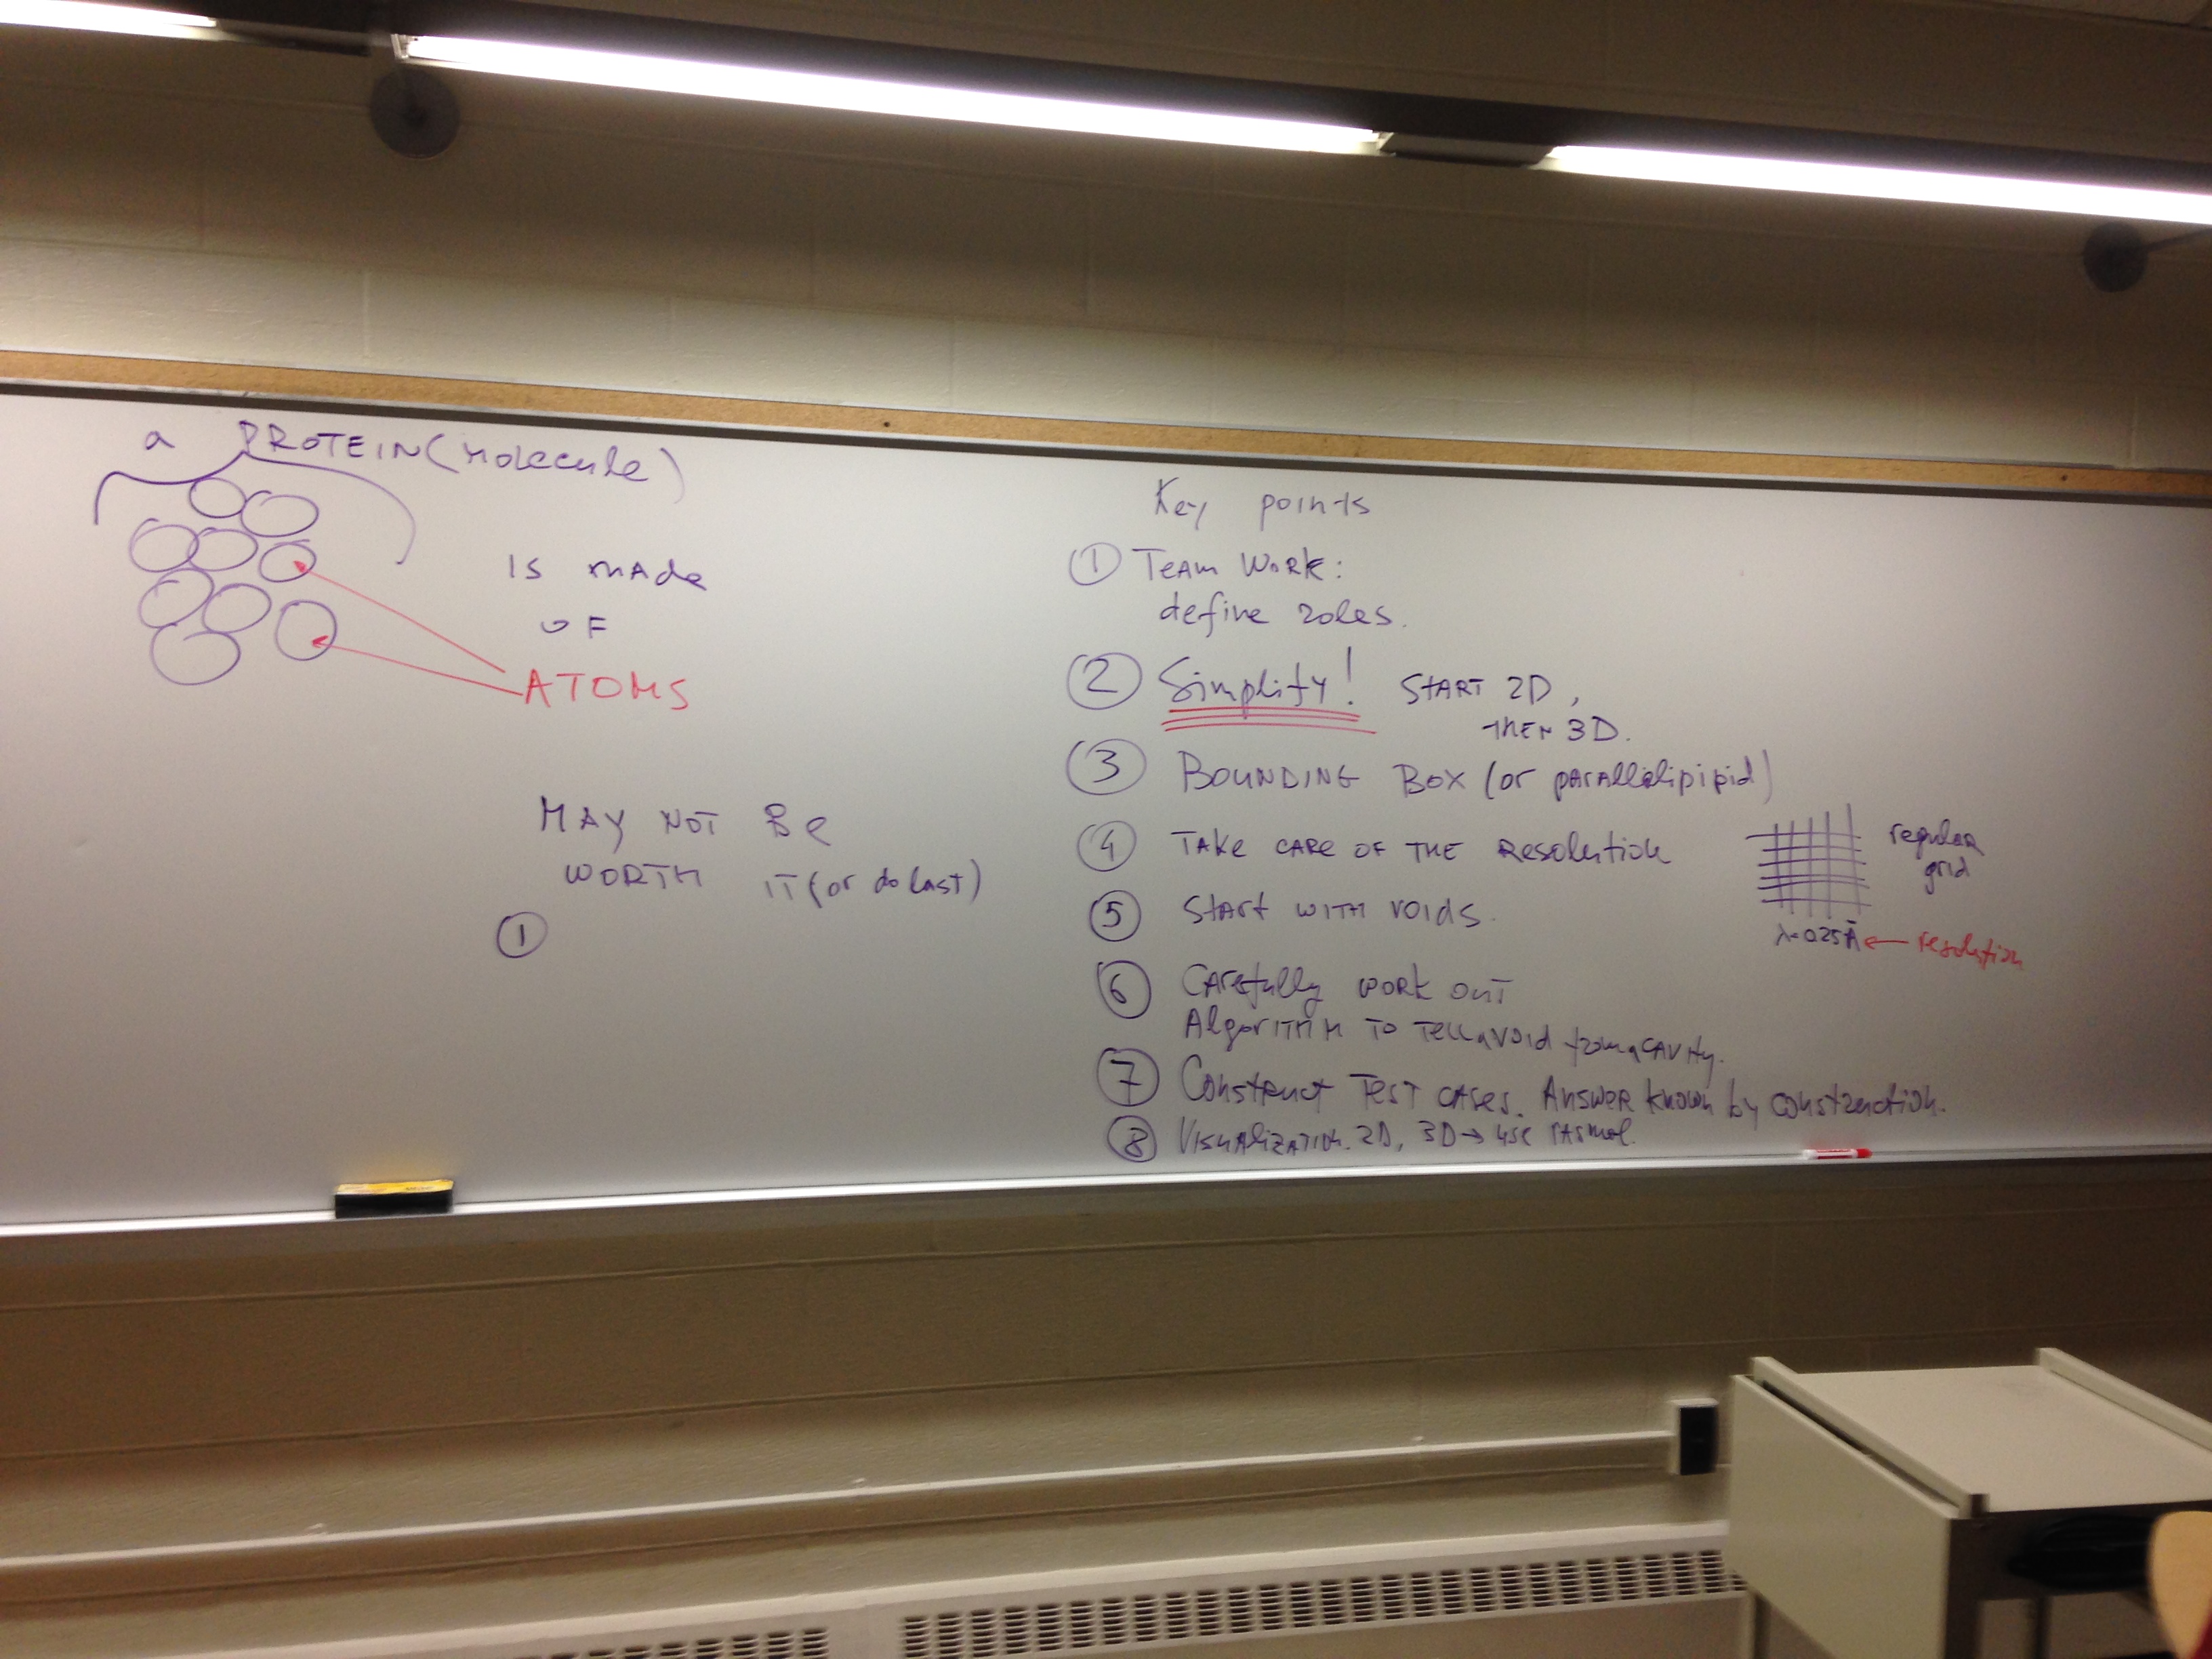 a PROTEIN (molecule)
IS MADE
OF
ATOMS
MAY NOT BE
WORTH IT (or do last)
①
Key points
① TEAM WORK:
define roles.
② Simplify! START 2D,
THEN 3D.
③ BOUNDING BOX (or parallelipipid)
④ TAKE CARE OF THE RESOLUTION
regular
grid
λ=0.25Å ← resolution
⑤ START WITH VOIDS.
⑥ CAREfully WORK OUT
AlgorITHM TO TELL a VOID from a CAVITY.
⑦ Construct TEST CASES. Answer known by construction.
⑧ VISUALIZATION. 2D, 3D → use RASmol.